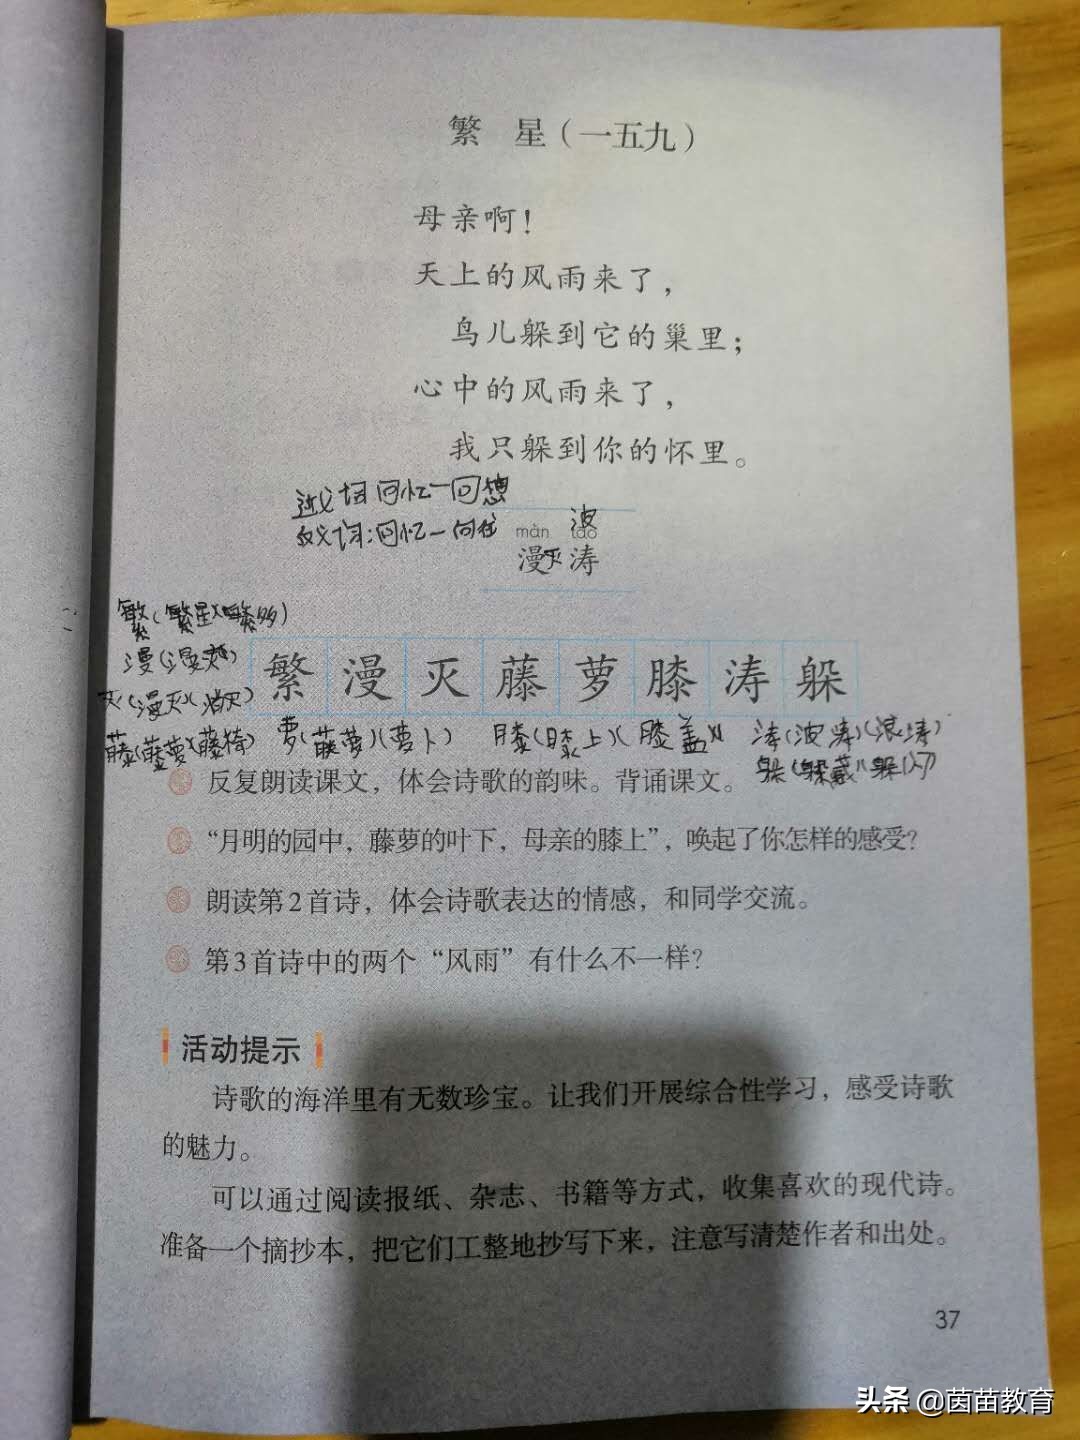 繁 星（一五九）
母亲啊！
天上的风雨来了，
鸟儿躲到它的巢里；
心中的风雨来了，
我只躲到你的怀里。
近义词 回忆一回想
反义词：回忆一向往
波
màn tāo
漫灭涛
繁（繁星）（繁多）
漫（漫灭）
灭（漫灭）（消灭）
繁漫灭藤萝膝涛躲
藤（藤萝）（藤椅） 萝（藤萝）（萝卜） 膝（膝上）（膝盖） 涛（波涛）（浪涛）
躲（躲藏）（躲闪）
反复朗读课文，体会诗歌的韵味。背诵课文。
“月明的园中，藤萝的叶下，母亲的膝上”，唤起了你怎样的感受？
朗读第2首诗，体会诗歌表达的情感，和同学交流。
第3首诗中的两个“风雨”有什么不一样？
活动提示
诗歌的海洋里有无数珍宝。让我们开展综合性学习，感受诗歌
的魅力。
可以通过阅读报纸、杂志、书籍等方式，收集喜欢的现代诗。
准备一个摘抄本，把它们工整地抄写下来，注意写清楚作者和出处。
37
头条 @茵苗教育